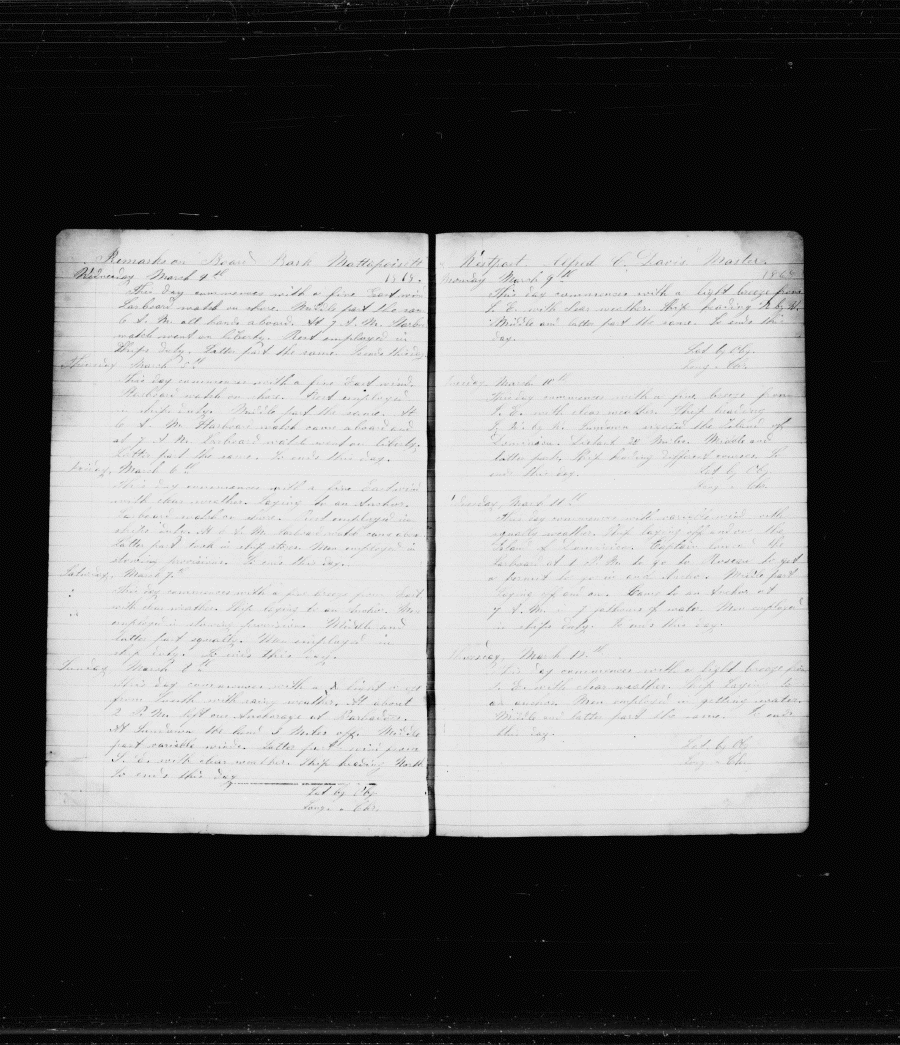 Remarks on Board Bark Mattapoisett
Wednesday March 4th 1868.
This day commences with a fine East wind
Larboard watch on shore. Middle part the same
6 A. M. all hands aboard. At 7 A. M. Starb
watch went on liberty. Rest employed in
Ships duty. Latter part the same. So ends this day
Thursday March 5th
This day commences with a fine East wind.
Starboard watch on shore. Rest employed
in ship duty. Middle part the same. At
6 A. M. Starboard watch came aboard and
at 7 A. M. Larboard watch went on liberty.
Latter part the same. So ends this day.
Friday, March 6th
This day commences with a fine East wind
with clear weather. Laying to an Anchor.
Larboard watch on shore. Rest employed in
ships duty. At 6 A. M. Larboard watch came
Latter part took in ship stores. Men employed in
stowing provisions. So ends this day.
Saturday, March 7th
This day commences with a fine breeze from East
with clear weather. Ship laying to an Anchor. Men
employed in stowing provisions. Middle and
latter part squally. Men employed in
ship duty. So ends this day.
Sunday March 8th
This day commences with a light
from South with rainy weather. At about
2 P. M. left our Anchorage at Barbadoes.
At Sundown the land 5 Miles off. Middle
part variable winds. Latter part wind from
S. E. with clear weather. Ship heading North
So ends this day
Lat by Obs.
Long " Chr.
Westport Alfred C. Davis Master
Monday March 9th 1868
This day commences with a light breeze from
S. E. with clear weather. Ship heading N. by W.
Middle and latter part the same. So ends this
day.
Lat by Obs.
Long " Chr.
Tuesday March 10th
This day commences with a fine breeze from
S. E. with clear weather. Ship heading
N. by W. Sundown the Island of
Dominica. distant 25 Miles. Middle and
latter part, Ship heading different courses. So
ends this day. Lat by Obs.
Long " Chr.
Wednesday, March 11th
This day commences with variable wind with
squally weather. Ship laying off and on the
Island of Dominica. Captain the
Larboard at 1 P. M. to go to Roseau to get
a permit to come and Anchor. Middle part
laying off and on. Came to an Anchor at
7 A. M. in 7 fathoms of water. Men employed
in ships duty. So ends this day.
Thursday, March 12th
This day commences with a light breeze from
S. E. with clear weather. Ship laying to
an anchor. Men employed in getting water.
Middle and latter part the same. So ends
this day.
Lat. by Obs
Long " Chr.